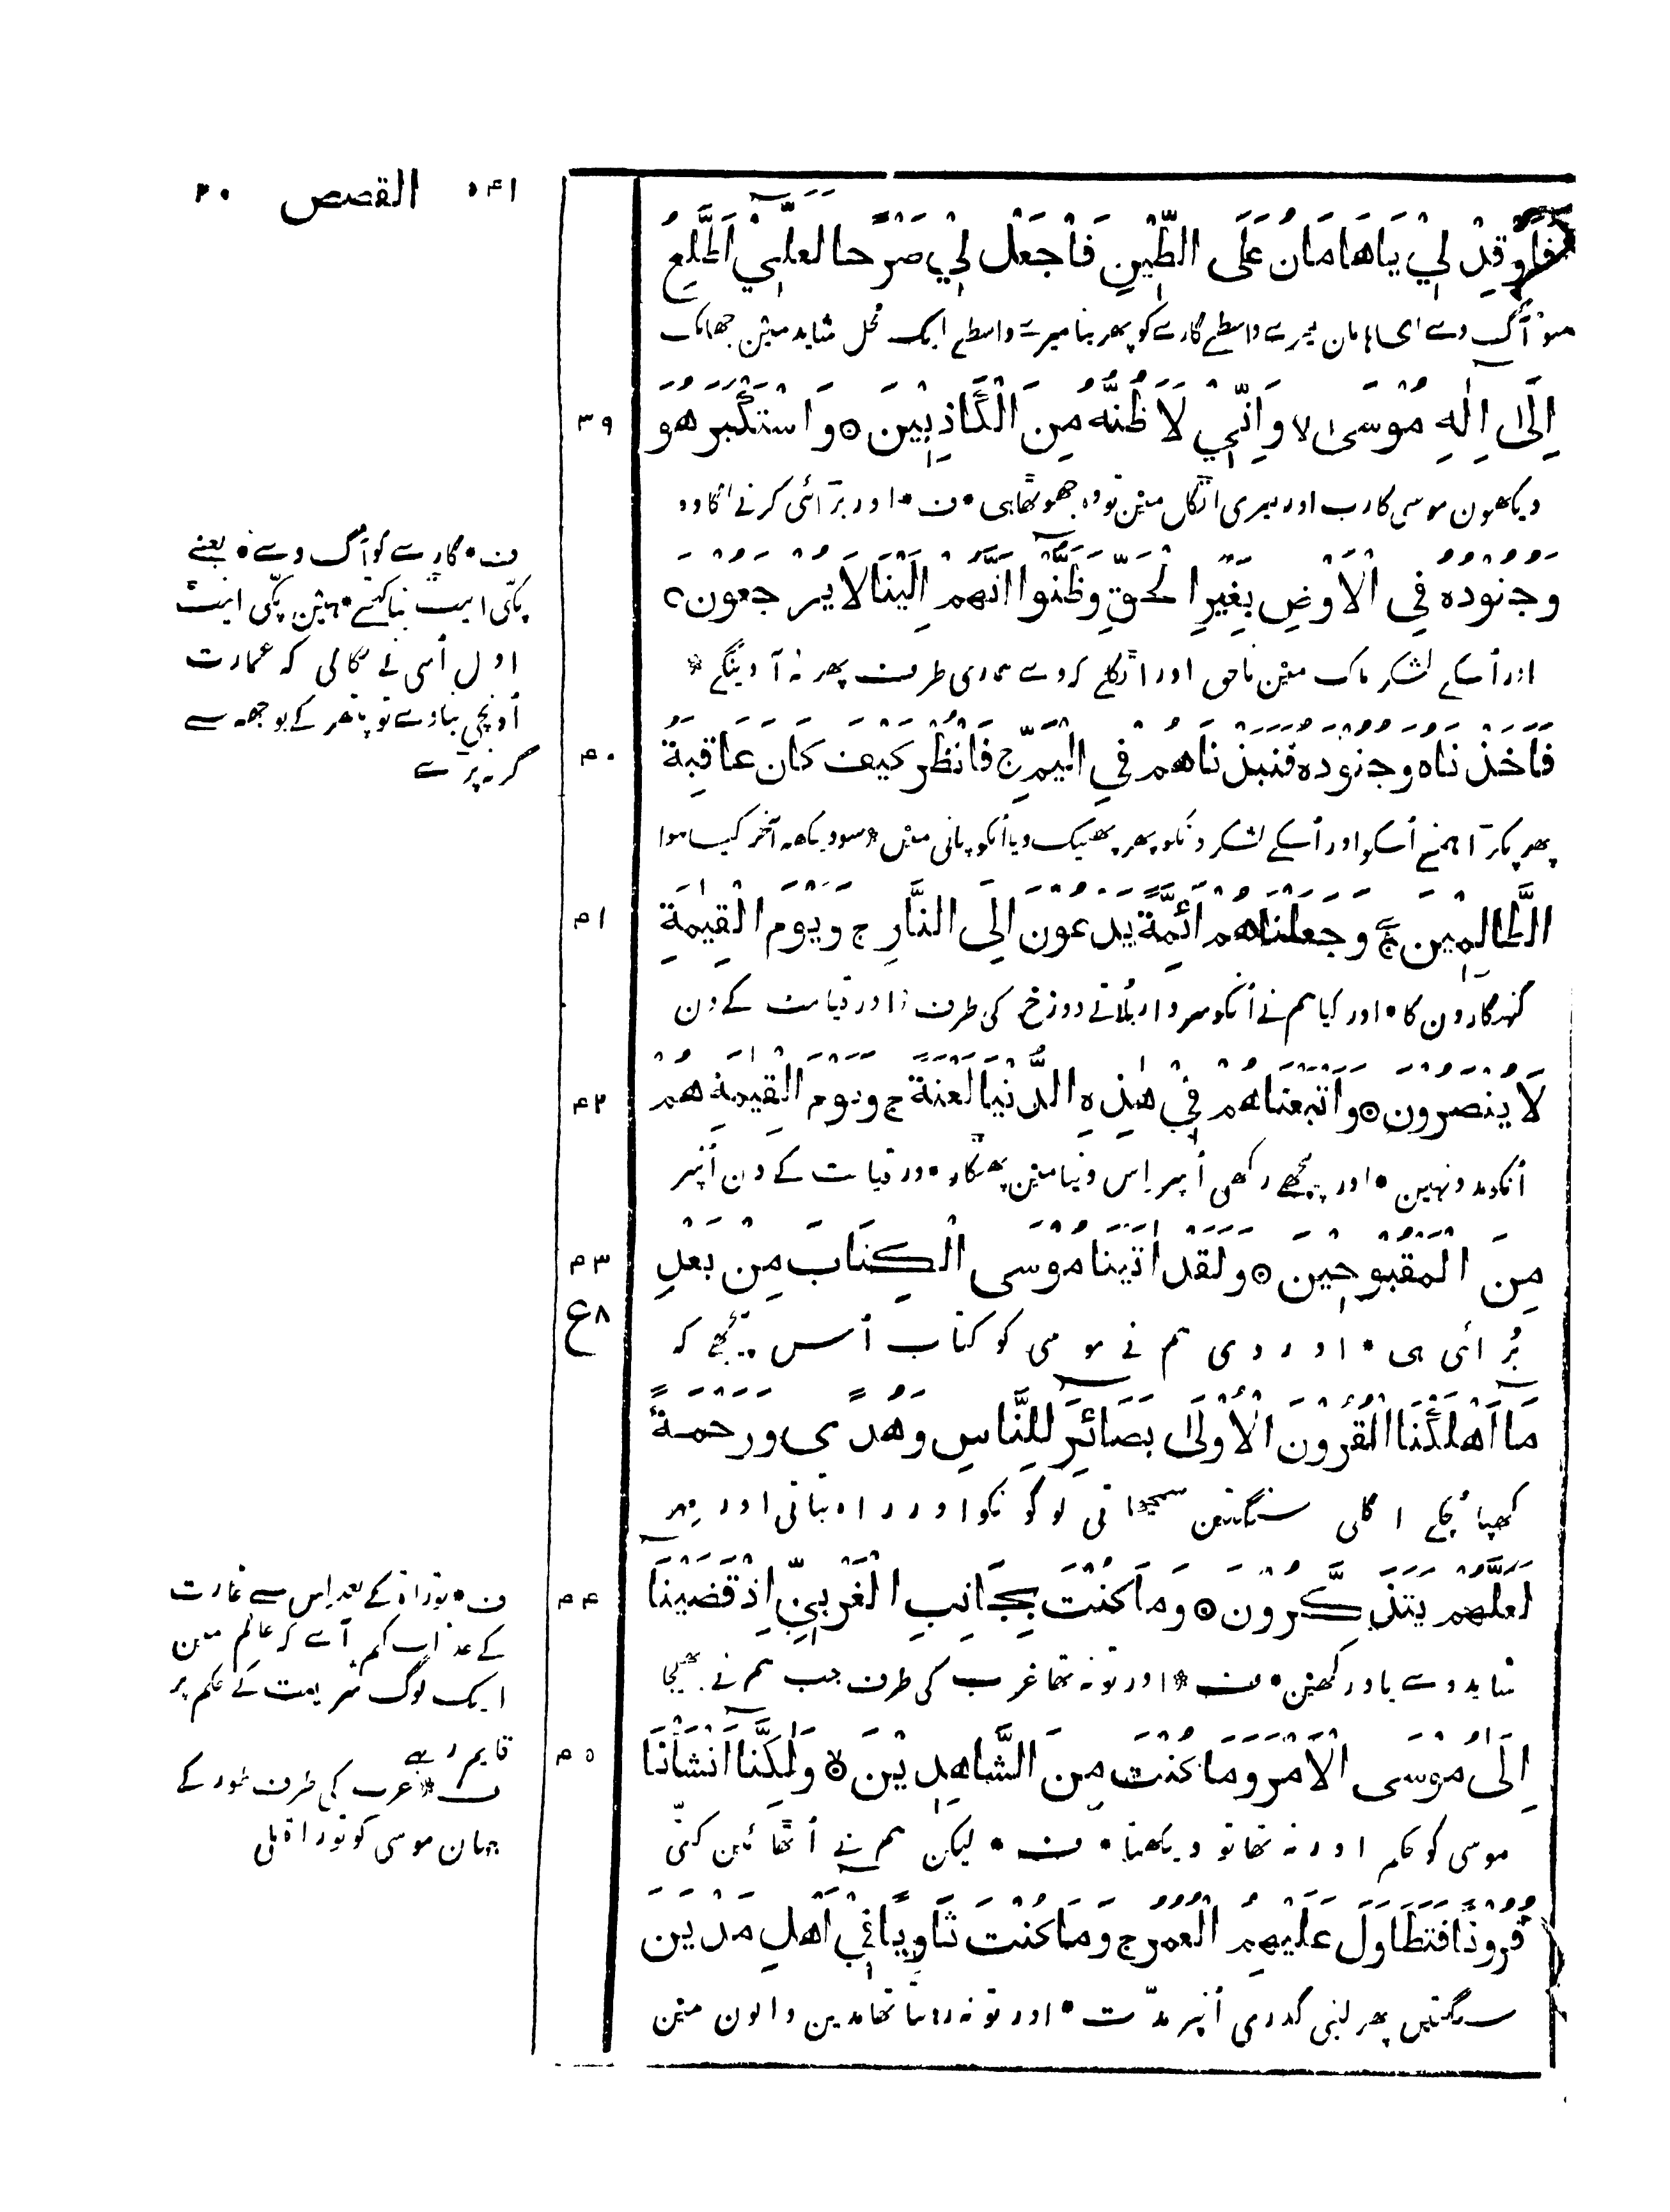 ۵۴۱ القصص ۲۰
فَأَوْقِدْ لِيْ يَاهَامَانُ عَلَى الطِّيْنِ فَاجْعَلْ لِيْ صَرْحًا لَعَلِّيْ اَطَّلِعُ
سو آگ دے ای ہامان میرے واسطے گارے کو پھر بنا میرے واسطے ایک محل شاید مین جھانک
اِلَىٰ اِلٰهِ مُوْسَىٰ ۙ وَاِنِّيْ لَاَظُنُّهُ مِنَ الْكَاذِبِيْنَ ۞ وَاسْتَكْبَرَ هُوَ
۳۹
دیکھون موسی کا رب اور میری اٹکل مین تو وہ جھوٹھا ہی • ف • اور بڑائی کرنے لگا وہ
وَجُنُوْدُهُ فِي الْاَرْضِ بِغَيْرِ الْحَقِّ وَظَنُّوْا اَنَّهُمْ اِلَيْنَا لَا يُرْجَعُوْنَ
اور اُسکے لشکر ملک مین ناحق اور اٹکلے کہ وے ہماری طرف پھر نہ آوینگے *
فَاَخَذْنَاهُ وَجُنُوْدَهُ فَنَبَذْنَاهُمْ فِي الْيَمِّ ج فَانْظُرْ كَيْفَ كَانَ عَاقِبَةُ
۴۰
پھر پکڑا ہمنے اُسکو اور اُسکے لشکرونکو پھر پھینک دیا اُنکو پانی مین * سو دیکھ آخر کیسا ہوا
الظَّالِمِيْنَ ۞ وَجَعَلْنَاهُمْ اَئِمَّةً يَدْعُوْنَ اِلَى النَّارِ ج وَيَوْمَ الْقِيٰمَةِ
۴۱
گنہگارون کا • اور کیا ہم نے اُنکو سردار بُلاتے دوزخ کی طرف * اور قیامت کے دن
لَا يُنْصَرُوْنَ ۞ وَاَتْبَعْنَاهُمْ فِيْ هٰذِهِ الدُّنْيَا لَعْنَةً ج وَيَوْمَ الْقِيٰمَةِ هُمْ
۴۲
اُنکو مدد نہین • اور پیچھے رکھی اُنپر اِس دنیا مین پھٹکار • اور قیامت کے دن اُنپر
مِنَ الْمَقْبُوْحِيْنَ ۞ وَلَقَدْ اٰتَيْنَا مُوْسَى الْكِتَابَ مِنْ بَعْدِ
۴۳
۸ع
بُرائی ہی • اور دی ہم نے موسی کو کتاب اُس پیچھے کہ
مَا اَهْلَكْنَا الْقُرُوْنَ الْاُوْلَىٰ بَصَائِرَ لِلنَّاسِ وَهُدًى وَرَحْمَةً
کھپا چکے اگلی سنگتین سجھاتی لوگونکو اور راہ بتاتی اور مہر
لَعَلَّهُمْ يَتَذَكَّرُوْنَ ۞ وَمَا كُنْتَ بِجَانِبِ الْغَرْبِيِّ اِذْ قَضَيْنَا
۴۴
شاید وے یاد رکھین • ف * اور تو نہ تھا غرب کی طرف جب ہم نے بھیجا
اِلَى مُوْسَى الْاَمْرَ وَمَا كُنْتَ مِنَ الشَّاهِدِيْنَ ۙ وَلٰكِنَّا اَنْشَاْنَا
۴۵
موسی کو حکم اور نہ تھا تو دیکھتا • ف • لیکن ہم نے اُٹھائین کئی
قُرُوْنًا فَتَطَاوَلَ عَلَيْهِمُ الْعُمُرُ ج وَمَا كُنْتَ ثَاوِيًا فِيْ اَهْلِ مَدْيَنَ
سنگتین پھر لنبی گذری اُنپر مدّت • اور تو نہ رہتا تھا مدین والون مین
ف • گارے کو آگ دے • یعنے
پکّی اینٹ بنا کہتے ہین پکّی اینٹ
اول اُسی نے نکالی کہ عمارت
اُونچی بناوے تو پتھر کے بوجھہ سے
گر نہ پڑے
ف • توراۃ کے بعد اِس سے غارت
کے عذاب کم آئے کہ عالم مین
ایک لوگ شریعت کے حکم پر
قایم رہے
ف * غرب کی طرف طور کے
جہان موسی کو توراۃ ملی